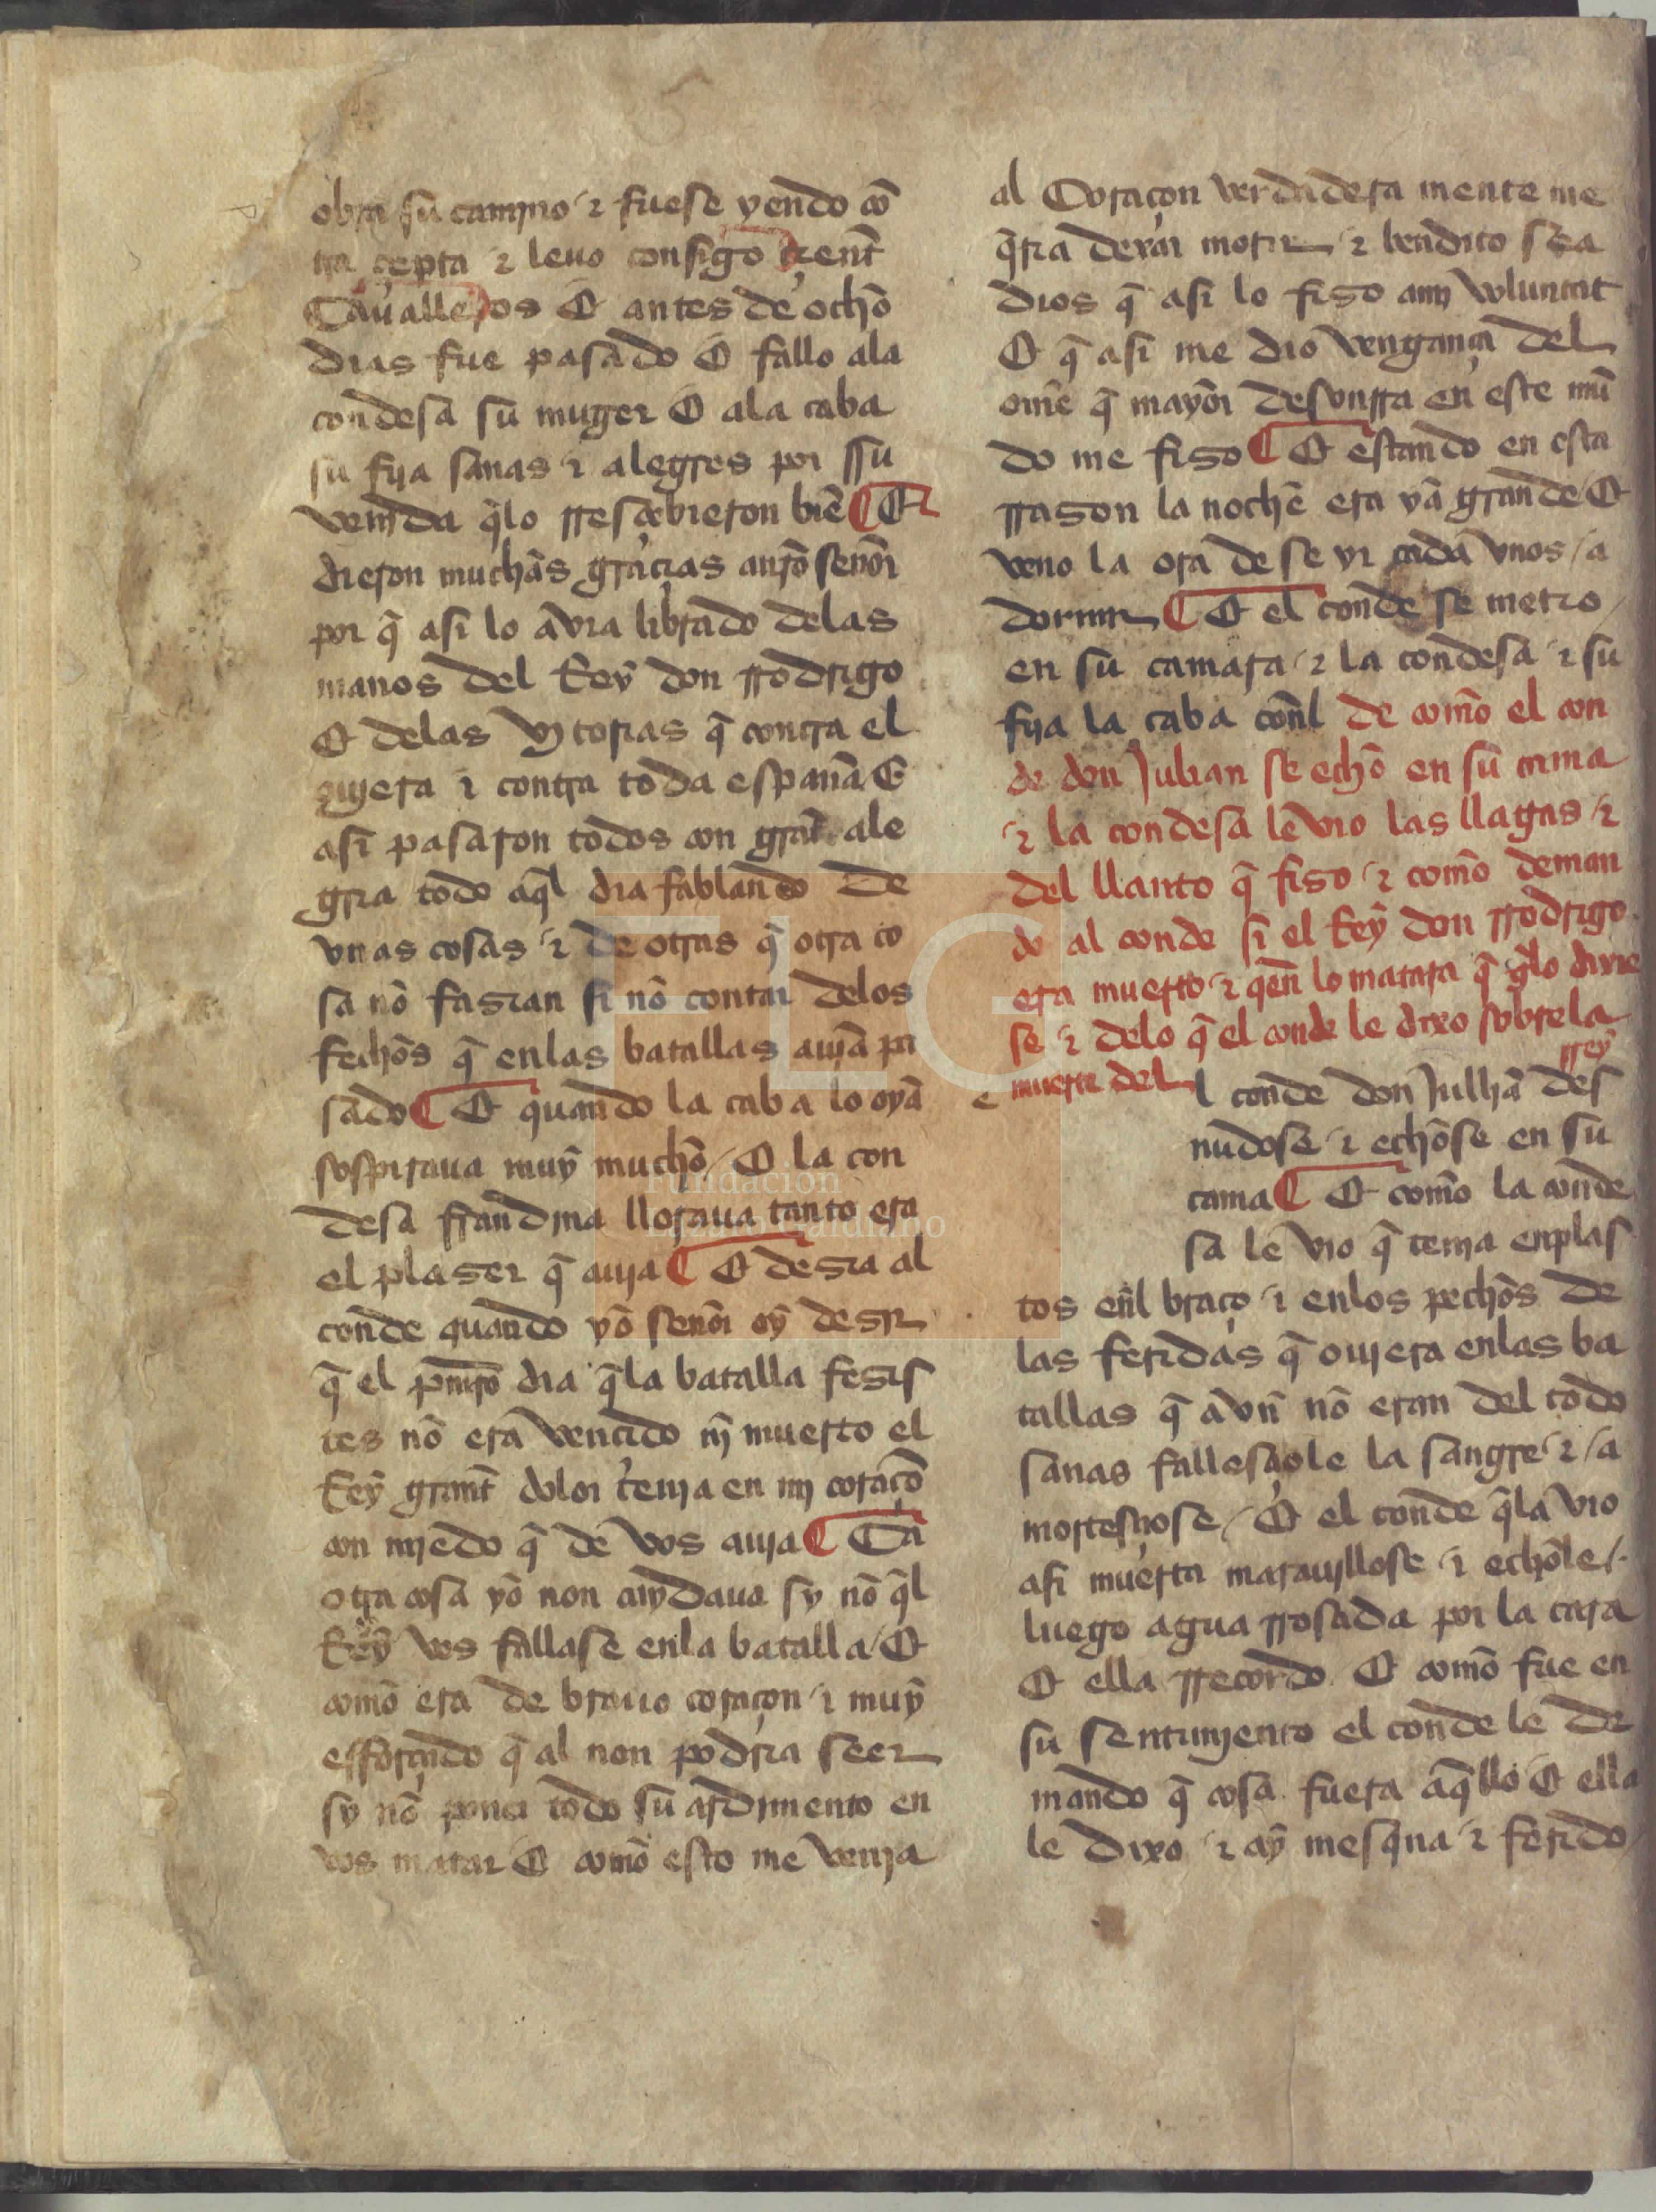 obra su camino ⁊ fuese yendo cõ
tra çepta ⁊ leuo consigo trent̃
Caualleros E antes de ocho
dias fue pasado E fallo ala
condesa su muger E ala caba
su fija sanas ⁊ alegres por ssu
venjda q̃lo rresçebieron biẽ ¶ E
dieron muchas graçias anr̃o señor
por q̃ asi lo avia librado delas
manos del Rey don rrodrigo
E delas vjtorias q̃ contra el
oujera ⁊ contra toda españa E
asi pasaron todos con grãt ale
gria todo aq̃l dia fablando de
vnas cosas ⁊ de otras q̃ otra co
sa nõ fasian si nõ contar delos
fechos q̃ enlas batallas aujã pa
sado ¶ E quando la caba lo oyá
sospiraua muy mucho / E la con
desa frandina lloraua tanto era
el plaser q̃ auja ¶ E desia al
conde quando yo señor oy desir
q̃ el pmr̃o dia q̃la batalla fesis
tes nõ era vencido nj̃ muerto el
Rey grant̃ dolor tenja en mj coraçõ
con mjedo q̃ de vos auja ¶ Ca
otra cosa yo non cuydaua sy nõ q̃l
Rey vos fallase enla batalla / E
como era de brauo coraçon ⁊ muy
esforçado q̃ al non podria seer
sy nõ poner todo su ardimento en
vos matar E como esto me venja
al Coraçon verdadera mente me
q̃ria dexar morir ⁊ bendito sea
dios q̃ asi lo fiso amj voluntat
E q̃ asi me dio vengança del
om̃e q̃ mayor desonrra en este mũ
do me fiso ¶ E estando en esta
rrason la noche era ya grande E
veno la ora de se yr cada vnos / a
dormir ¶ E el conde se metio /
en su camara ⁊ la condesa ⁊ su
fija la caba coñl de como el con
de don Julian se echo en su cama
⁊ la condesa le vio las llagas ⁊
del llanto q̃ fiso ⁊ como deman
do al conde si el Rey don rrodrigo
era muerto ⁊ qẽn lo matara q̃ g̃lo dixie
se ⁊ delo q̃ el conde le dixo sobrela
muerte del rrey
e l conde don Julliã des
nudose ⁊ echose en su
cama ¶ E como la conde
sa le vio q̃ tenja enplas
tos eñl braço ⁊ enlos pechos de
las feridas q̃ oujera enlas ba
tallas q̃ avñ nõ eran del todo
sanas fallesçiole la sangre ⁊ / a
mortesçiose / E el conde q̃la vio
asi muerta marauillose ⁊ echole /.
luego agua rrosada por la cara
E ella rrecordo E como fue en
su sentimjento el conde le de
mando q̃ cosa fuera aq̃llo E ella
le dixo ⁊ ay mesq̃na ⁊ ferido
FLG
Fundación
Lázaro Galdiano